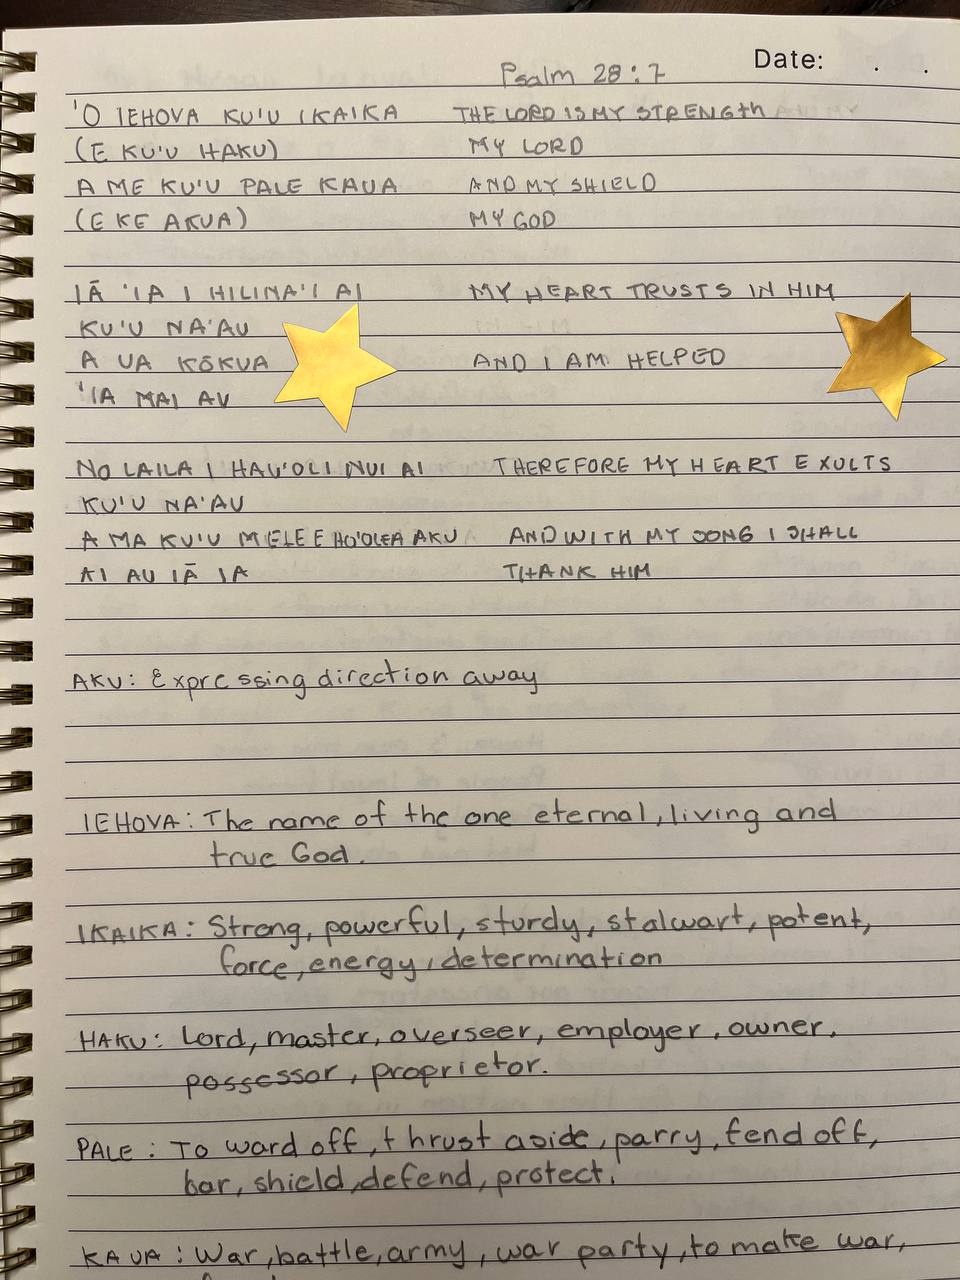 Date: . .
Psalm 28:7
'O IEHOVA KU'U IKAIKA THE LORD IS MY STRENGTH
(E KU'U HAKU) MY LORD
A ME KU'U PALE KAUA AND MY SHIELD
(E KE AKUA) MY GOD
IĀ 'IA I HILINA'I AI MY HEART TRUSTS IN HIM
KU'U NA'AU
A UA KŌKUA AND I AM HELPED
'IA MAI AU
NO LAILA I HAU'OLI NUI AI THEREFORE MY HEART EXULTS
KU'U NA'AU
A MA KU'U MELE E HO'OLEA AKU AND WITH MY SONG I SHALL
AI AU IĀ IA THANK HIM
AKU: Expressing direction away
IEHOVA: The name of the one eternal, living and
true God.
IKAIKA: Strong, powerful, sturdy, stalwart, potent,
force, energy, determination
HAKU: Lord, master, overseer, employer, owner,
possessor, proprietor.
PALE: To ward off, thrust aside, parry, fend off,
bar, shield, defend, protect.
KAUA: War, battle, army, war party, to make war,